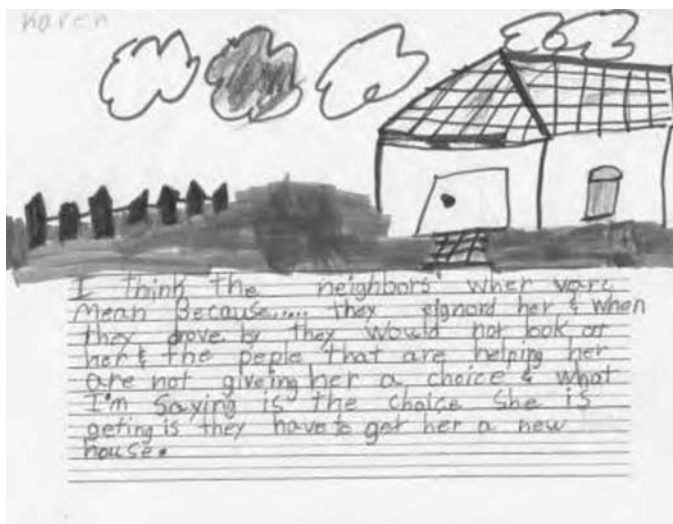 Karen
I think the neighbors' wher varc
Mean Because..... they eignord her & when
they drove by they would not look at
her & the peple that are helping her
are not giveing her a choice & what
I'm Saying is the choice She is
geting is they have to get her a new
house.